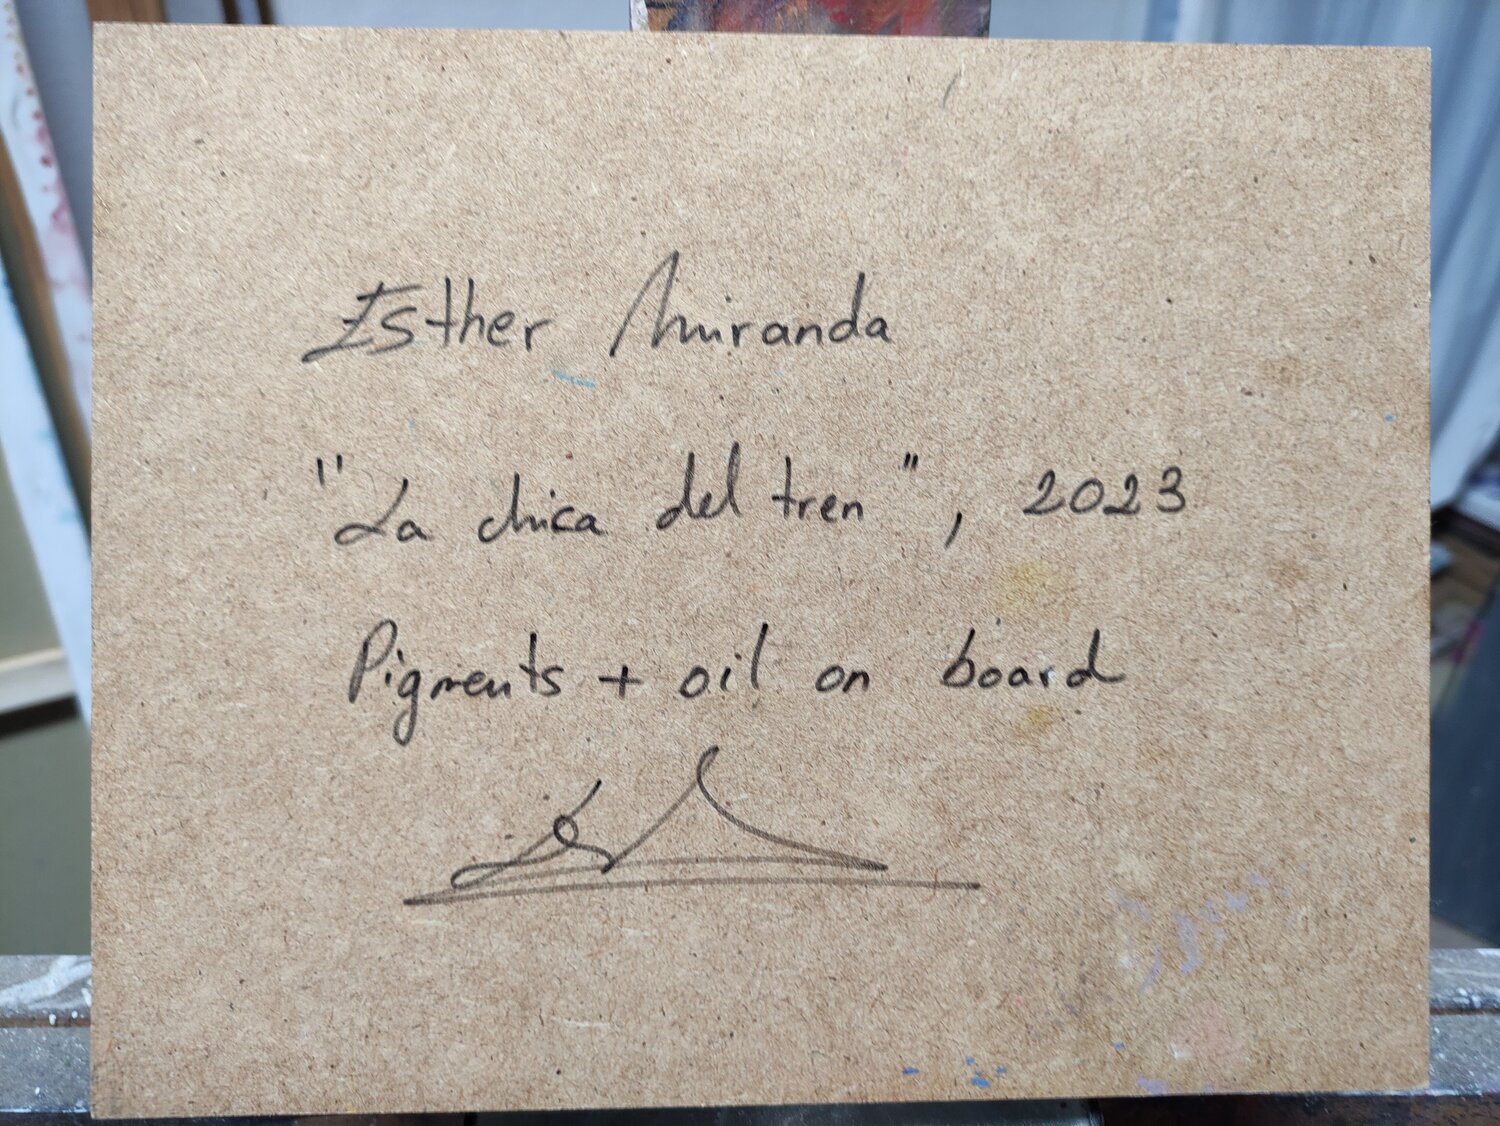 Esther Miranda
"La chica del tren", 2023
Pigments + oil on board